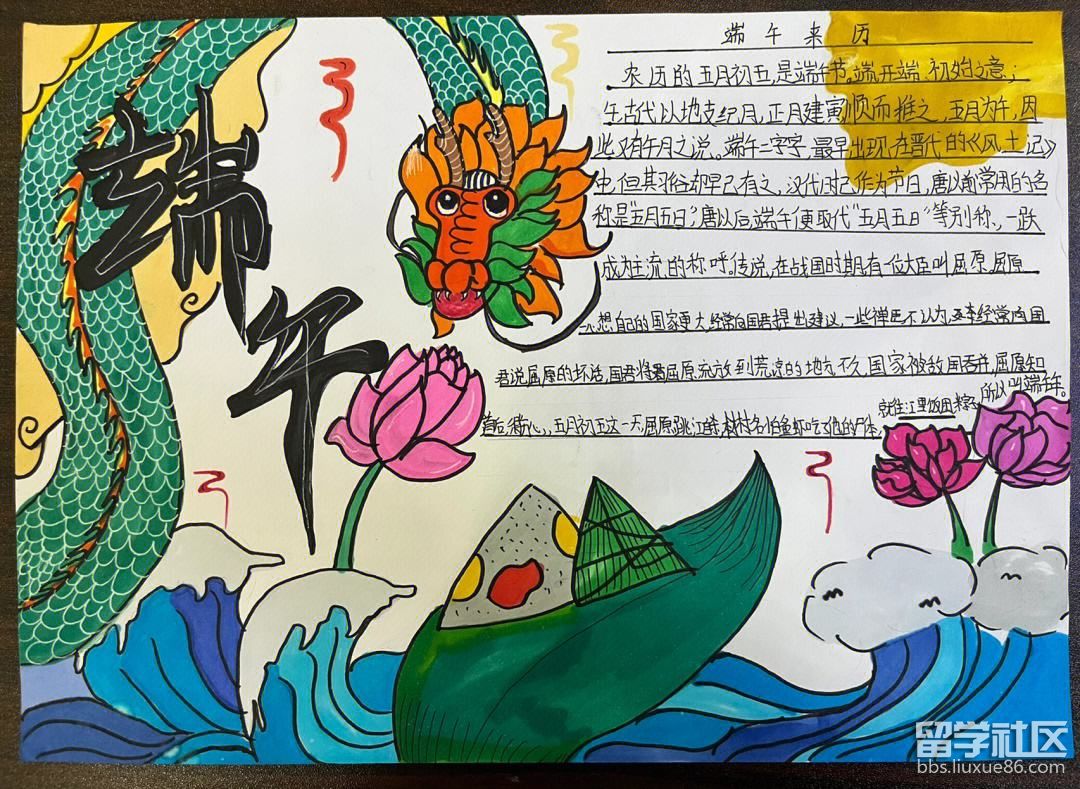 端午
端午来历
农历的五月初五,是端午节。端,开端、初始之意;
午古代以地支纪月,正月建寅顺而推之,五月为午,因
此又有午月之说。端午二字字,最早出现在晋代的《风土记》
中,但其俗却早已有之,汉代时已作为节日,唐以前常用的名
称是“五月五日”,唐以后,端午便取代“五月五日”等别称,一跃
成为主流的称呼。传说,在战国时期,有一位大臣叫屈原,屈原
想自己的国家更大,经常向国君提出建议,一些 不认为 经常向国
君说屈原的坏话,国君将 屈原流放到荒凉的地方不久,国家被敌国吞并,屈原知
道后,很 心,五月初五这一天,屈原跳江 ,村 怕鱼虾吃了他的尸体,
就往江里饭团 ,所以叫端午。
留学社区
bbs.liuxue86.com